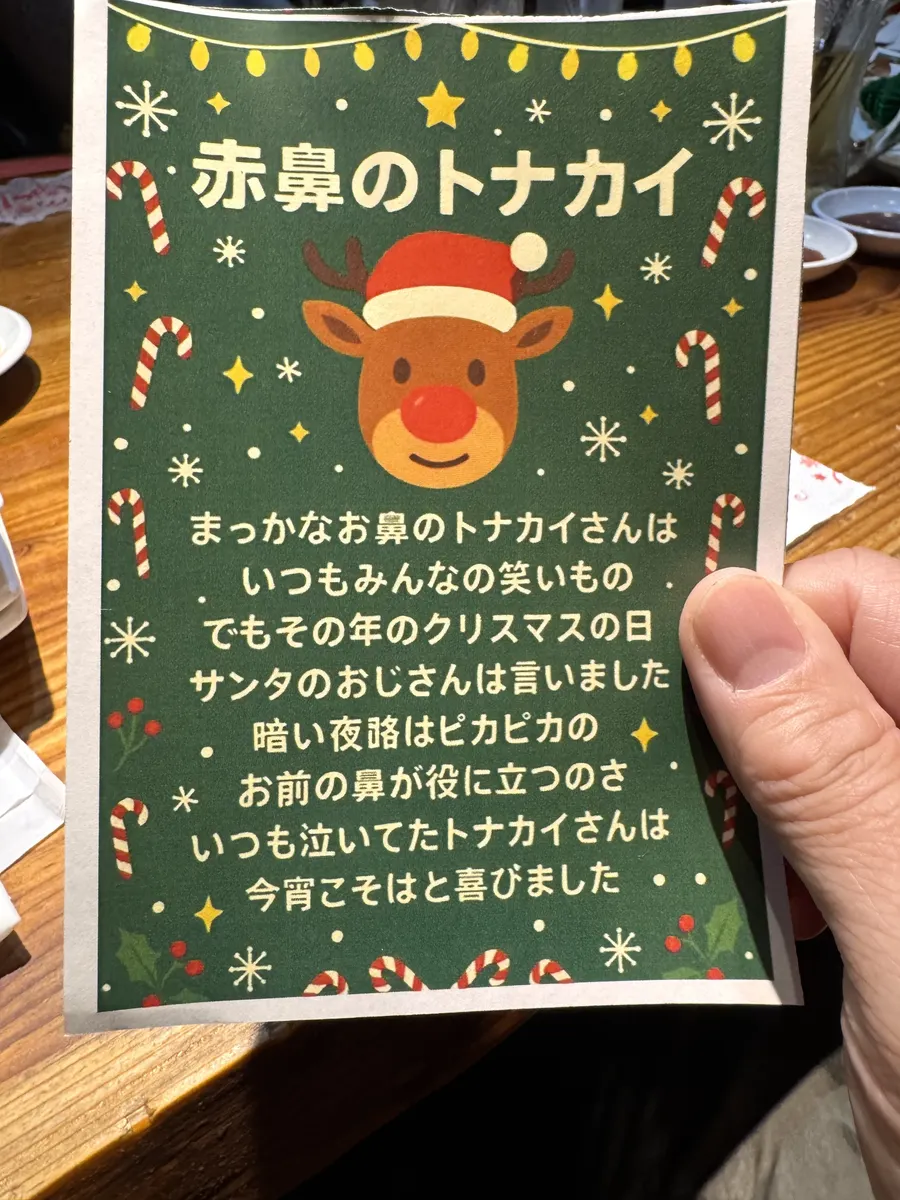 赤鼻のトナカイ
まっかなお鼻のトナカイさんは
いつもみんなの笑いもの
でもその年のクリスマスの日
サンタのおじさんは言いました
暗い夜路はピカピカの
お前の鼻が役に立つのさ
いつも泣いてたトナカイさんは
今宵こそはと喜びました